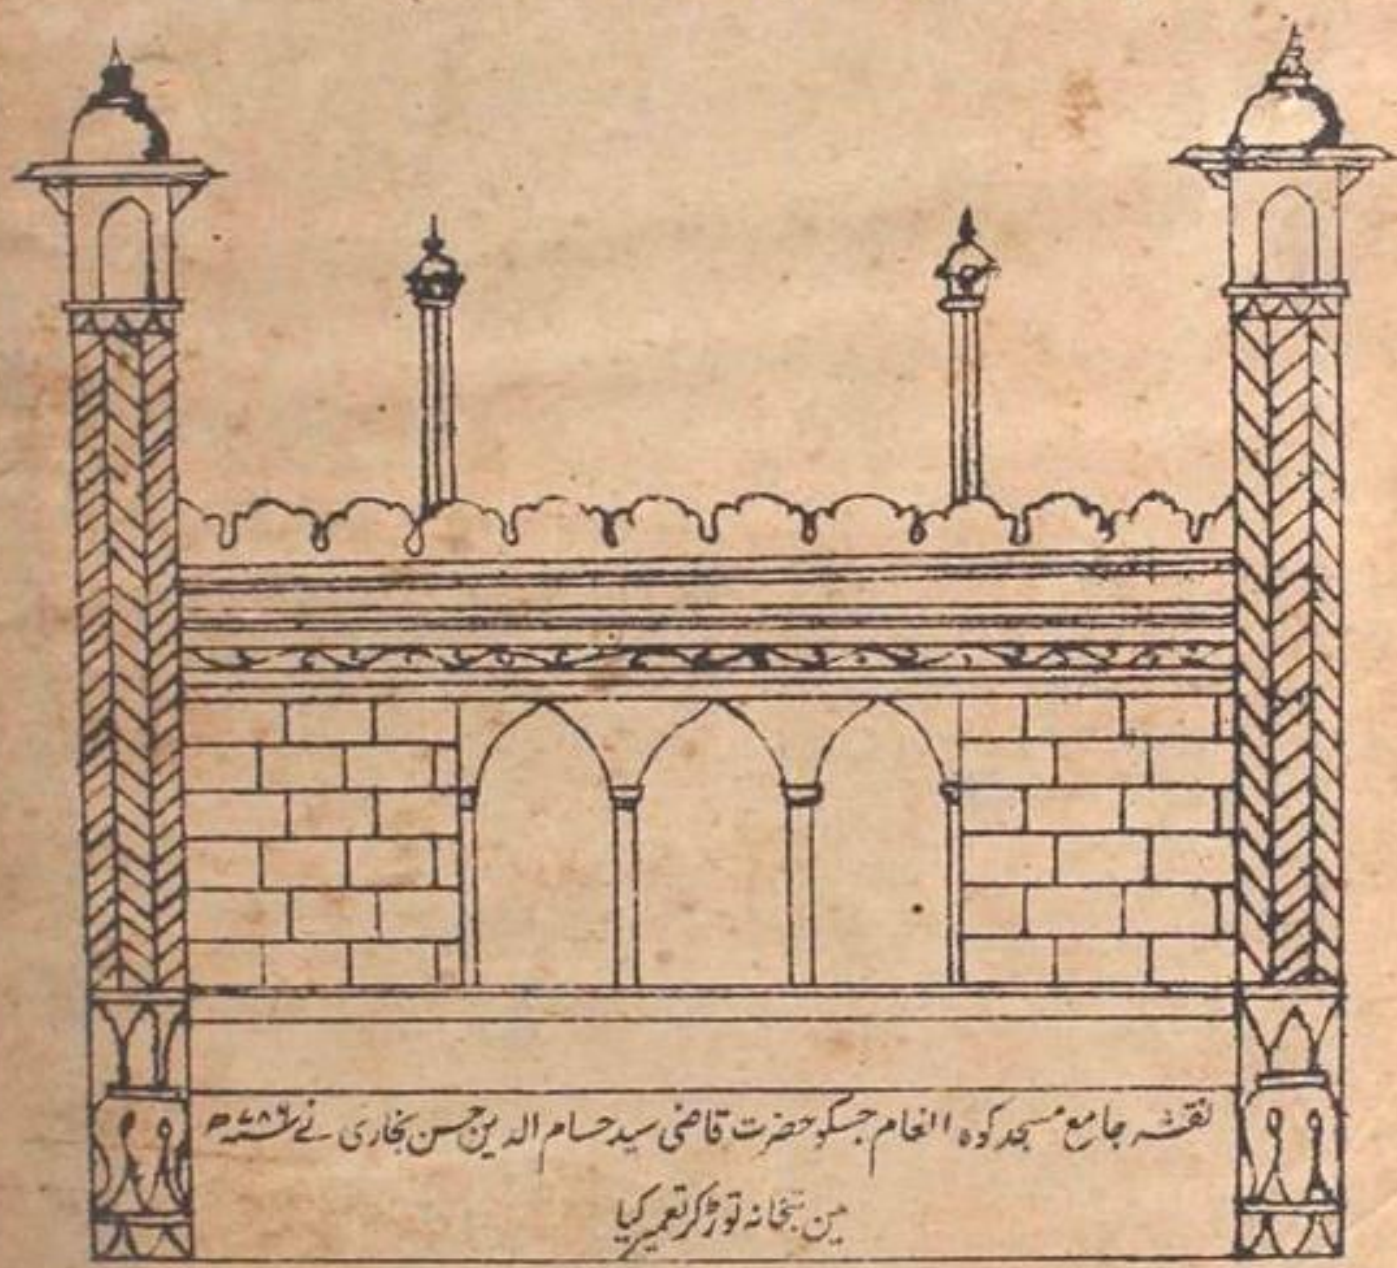 نقشہ جامع مسجد کوہ انعام جسکو حضرت قاضی سید حسام الدین حسن بخاری نے ۷۸۶ھ
مین بتخانہ توڑ کر تعمیر کیا